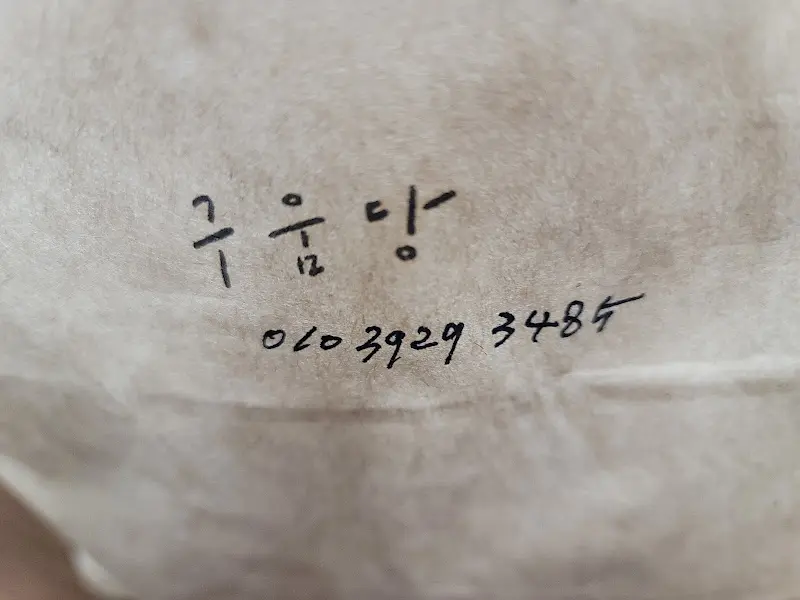 구웊당
010 3929 3485